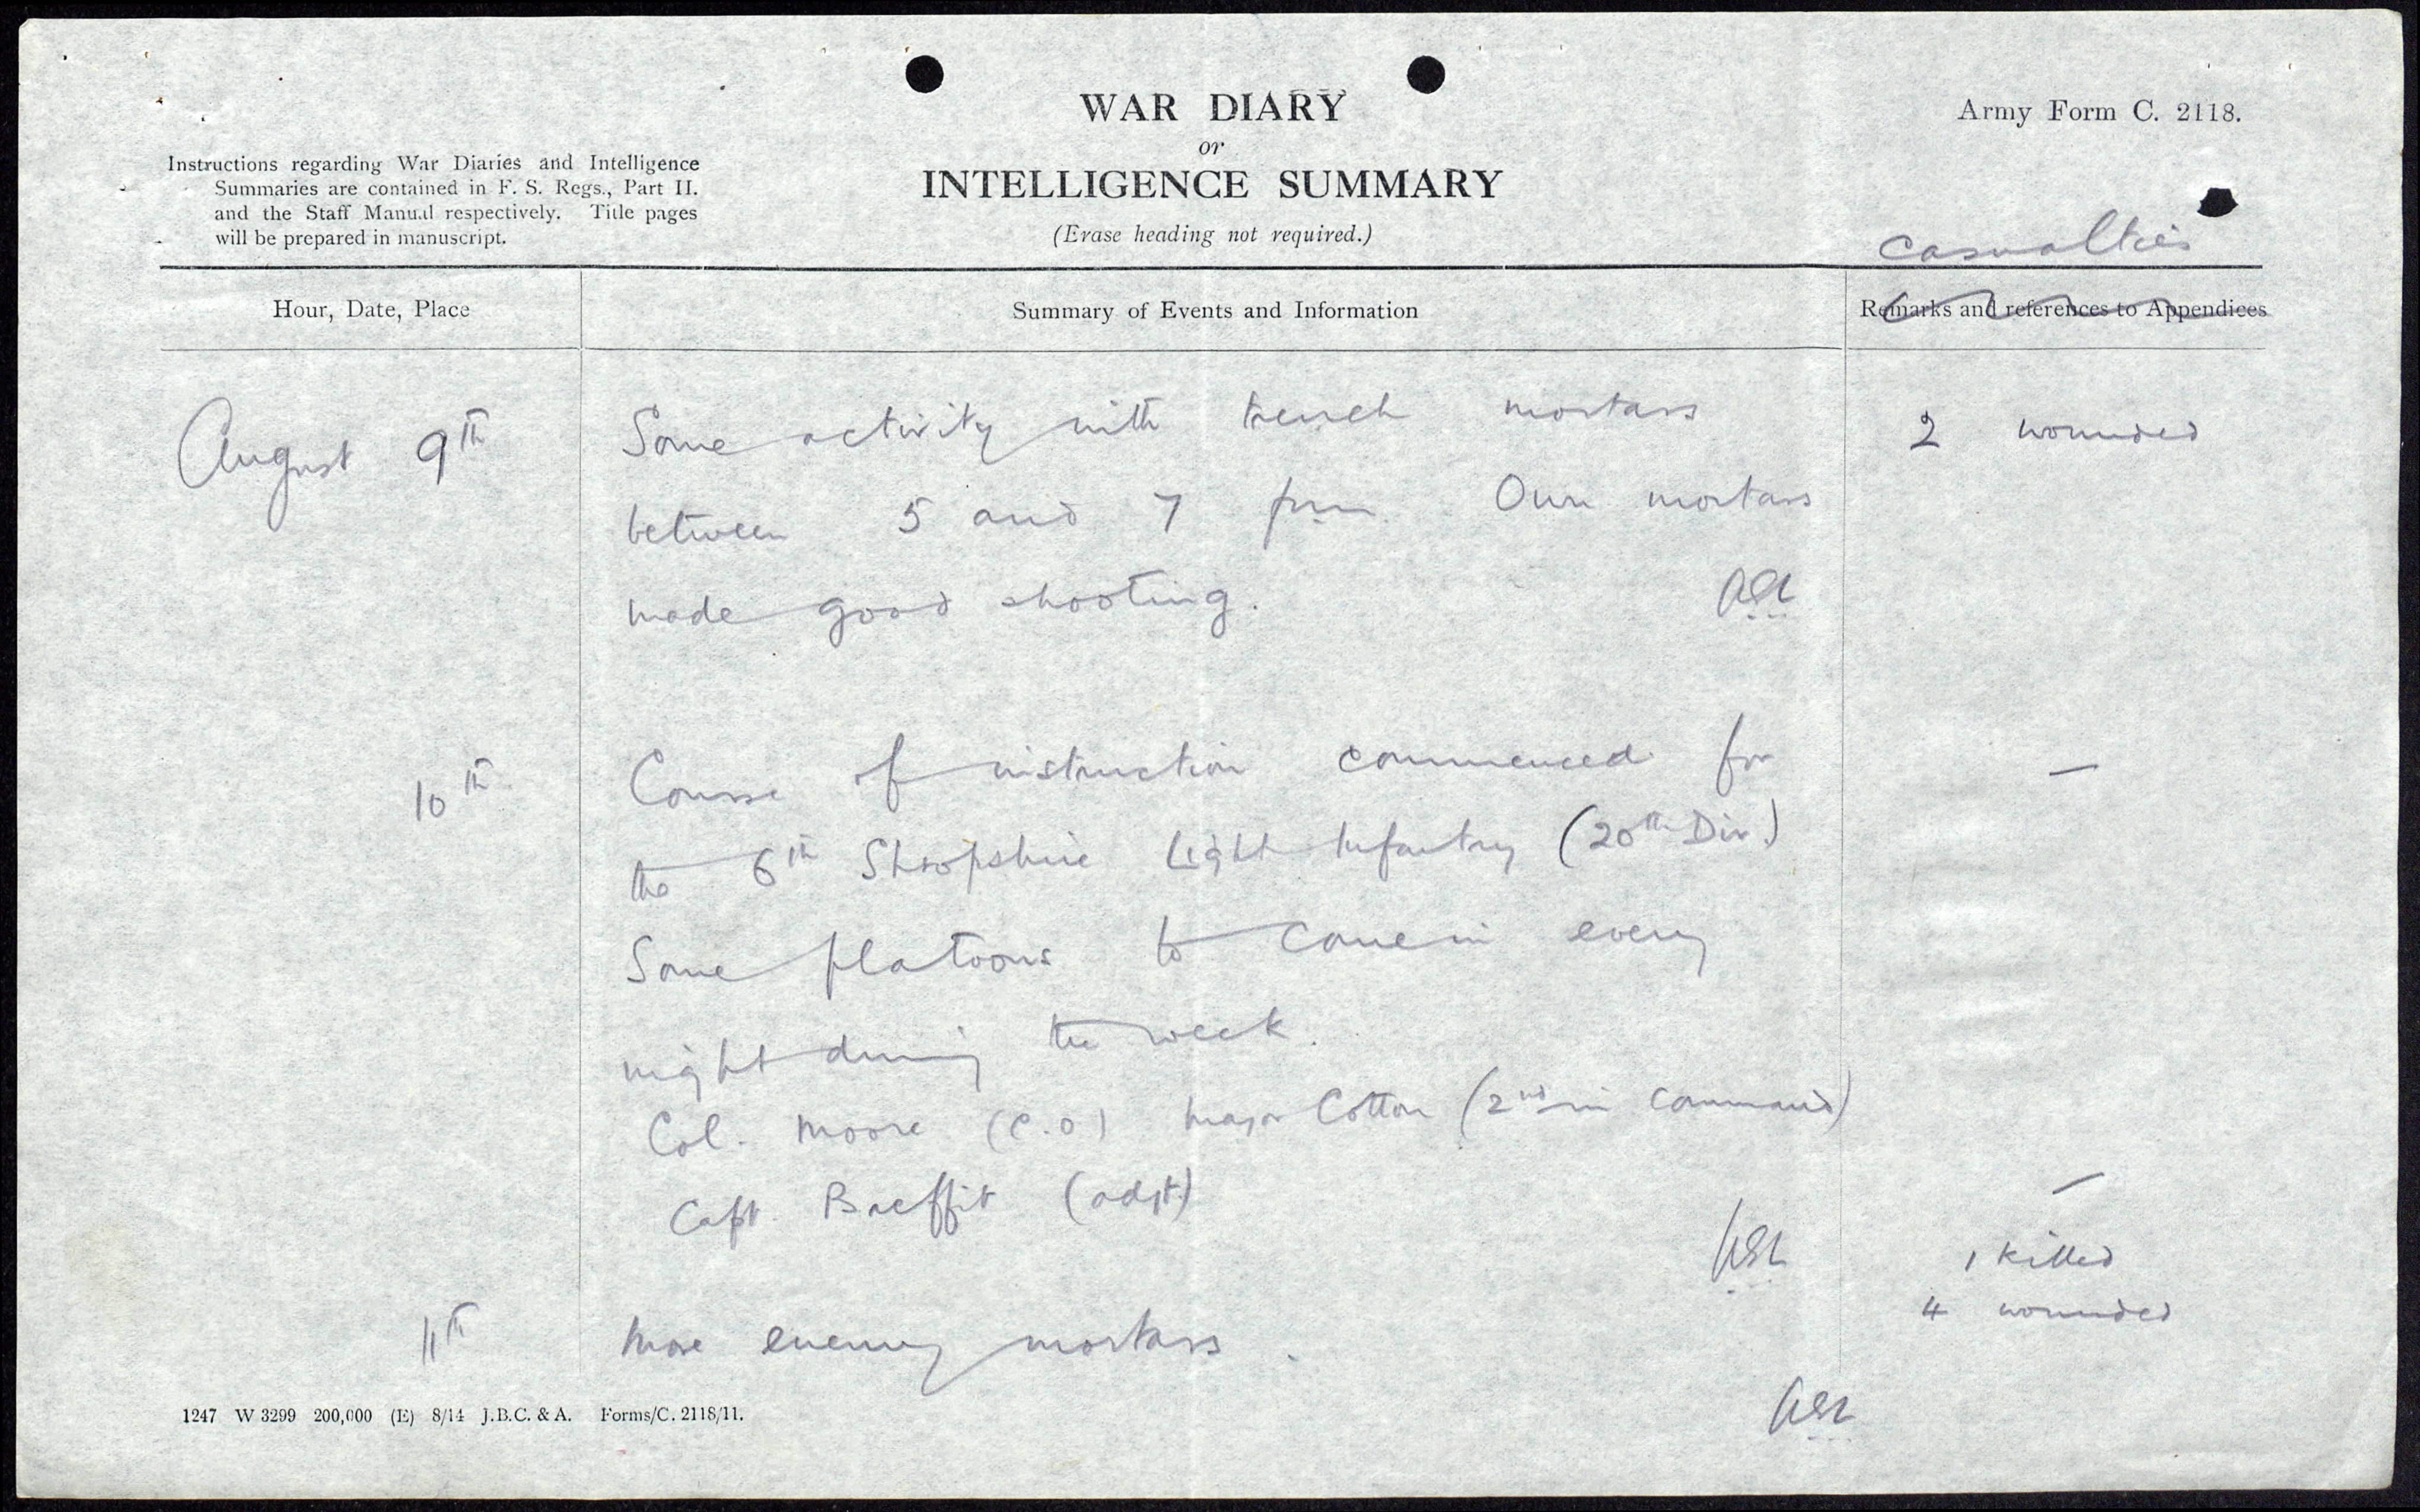 WAR DIARY
or
INTELLIGENCE SUMMARY
(Erase heading not required.)
Army Form C. 2118.
Instructions regarding War Diaries and Intelligence
Summaries are contained in F. S. Regs., Part II.
and the Staff Manual respectively. Title pages
will be prepared in manuscript.
Casualties
Hour, Date, Place
Summary of Events and Information
Remarks and references to Appendices
August 9th
Some activity with trench mortars
2 wounded
between 5 and 7 pm. Our mortars
made good shooting.
10th
Course of instruction commenced for
—
the 6th Shropshire Light Infantry (20th Div.)
Some platoons to come in every
night during the week.
Col. Moore (C.O) Major Cotton (2nd in Command)
Capt. (adjt)
—
1 killed
4 wounded
11th
More enemy mortars.
1247 W 3299 200,000 (E) 8/14 J.B.C. & A. Forms/C. 2118/11.